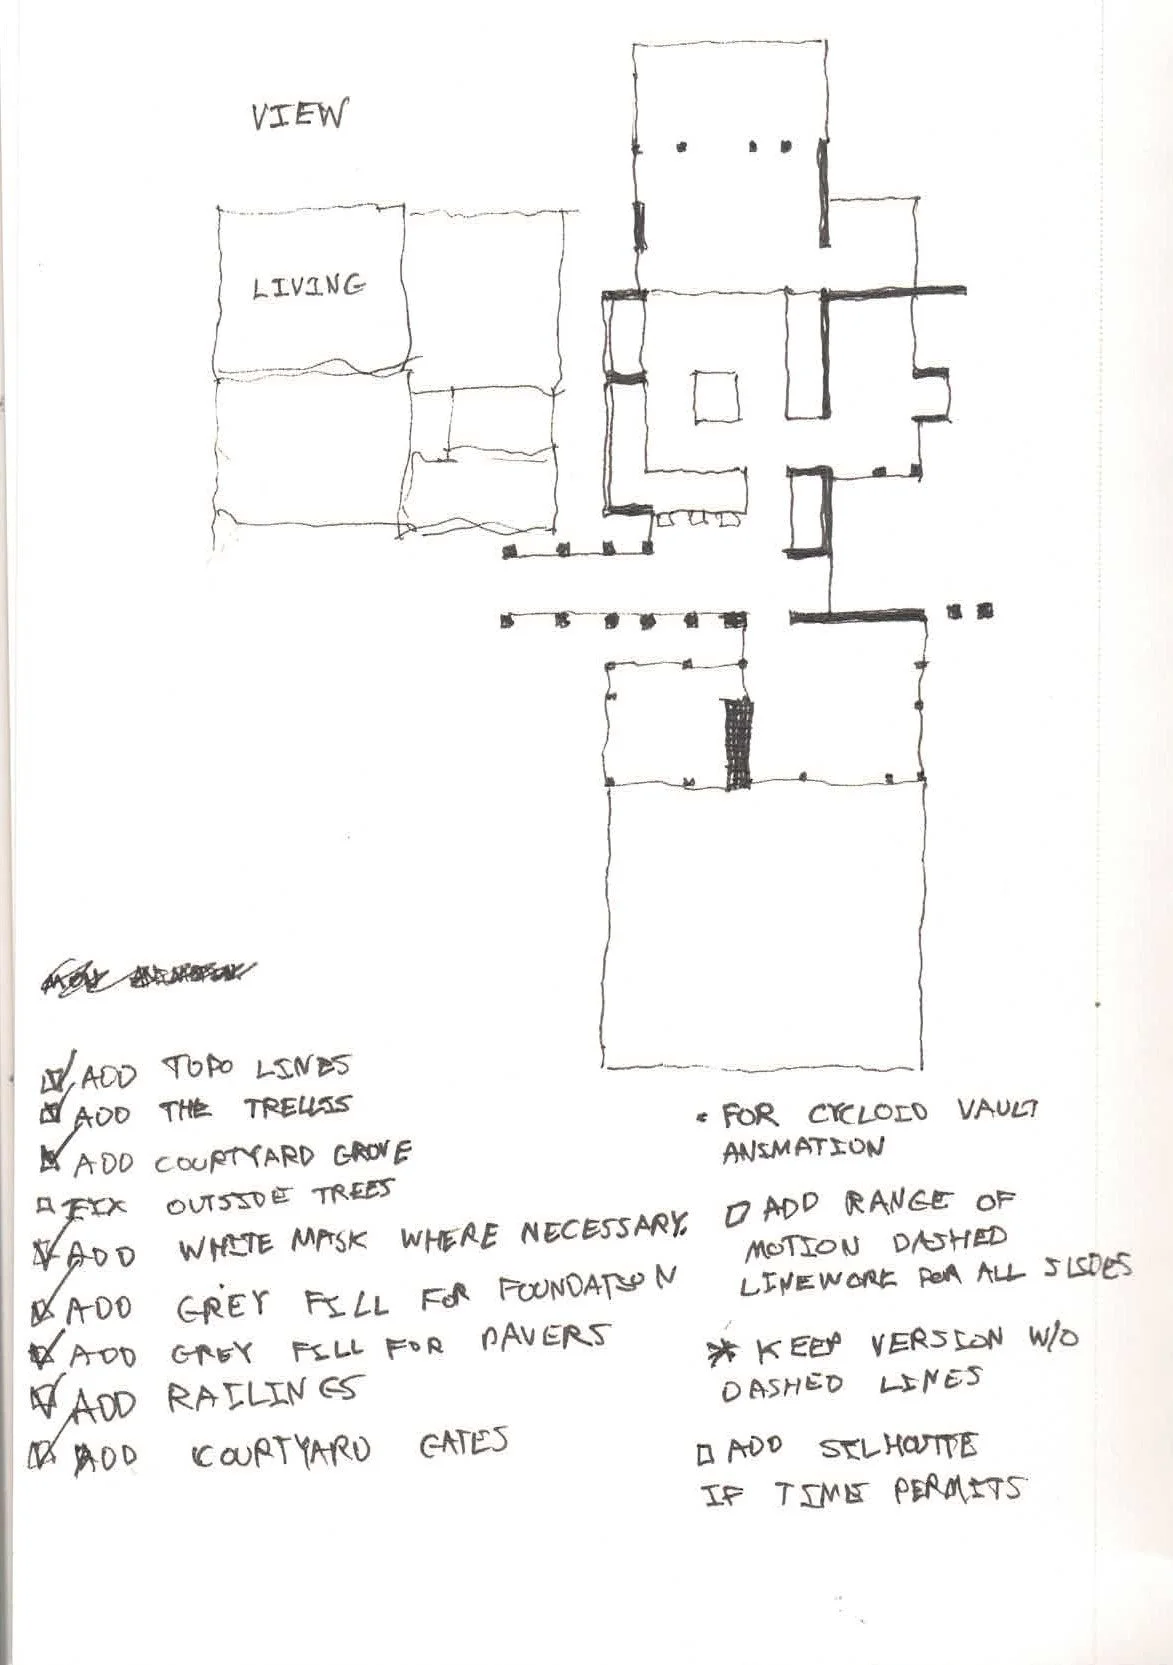 VIEW
LIVING
ADD TOPO LINES
ADD THE TRELLIS
ADD COURTYARD GROVE
FIX OUTSIDE TREES
ADD WHITE MASK WHERE NECESSARY.
ADD GREY FILL FOR FOUNDATION
ADD GREY FILL FOR PAVERS
ADD RAILINGS
ADD COURTYARD GATES
• FOR CYCLOID VAULT
ANIMATION
ADD RANGE OF
MOTION DASHED
LINEWORK FOR ALL SLIDES
* KEEP VERSION W/O
DASHED LINES
ADD SILHOUTTE
IF TIME PERMITS